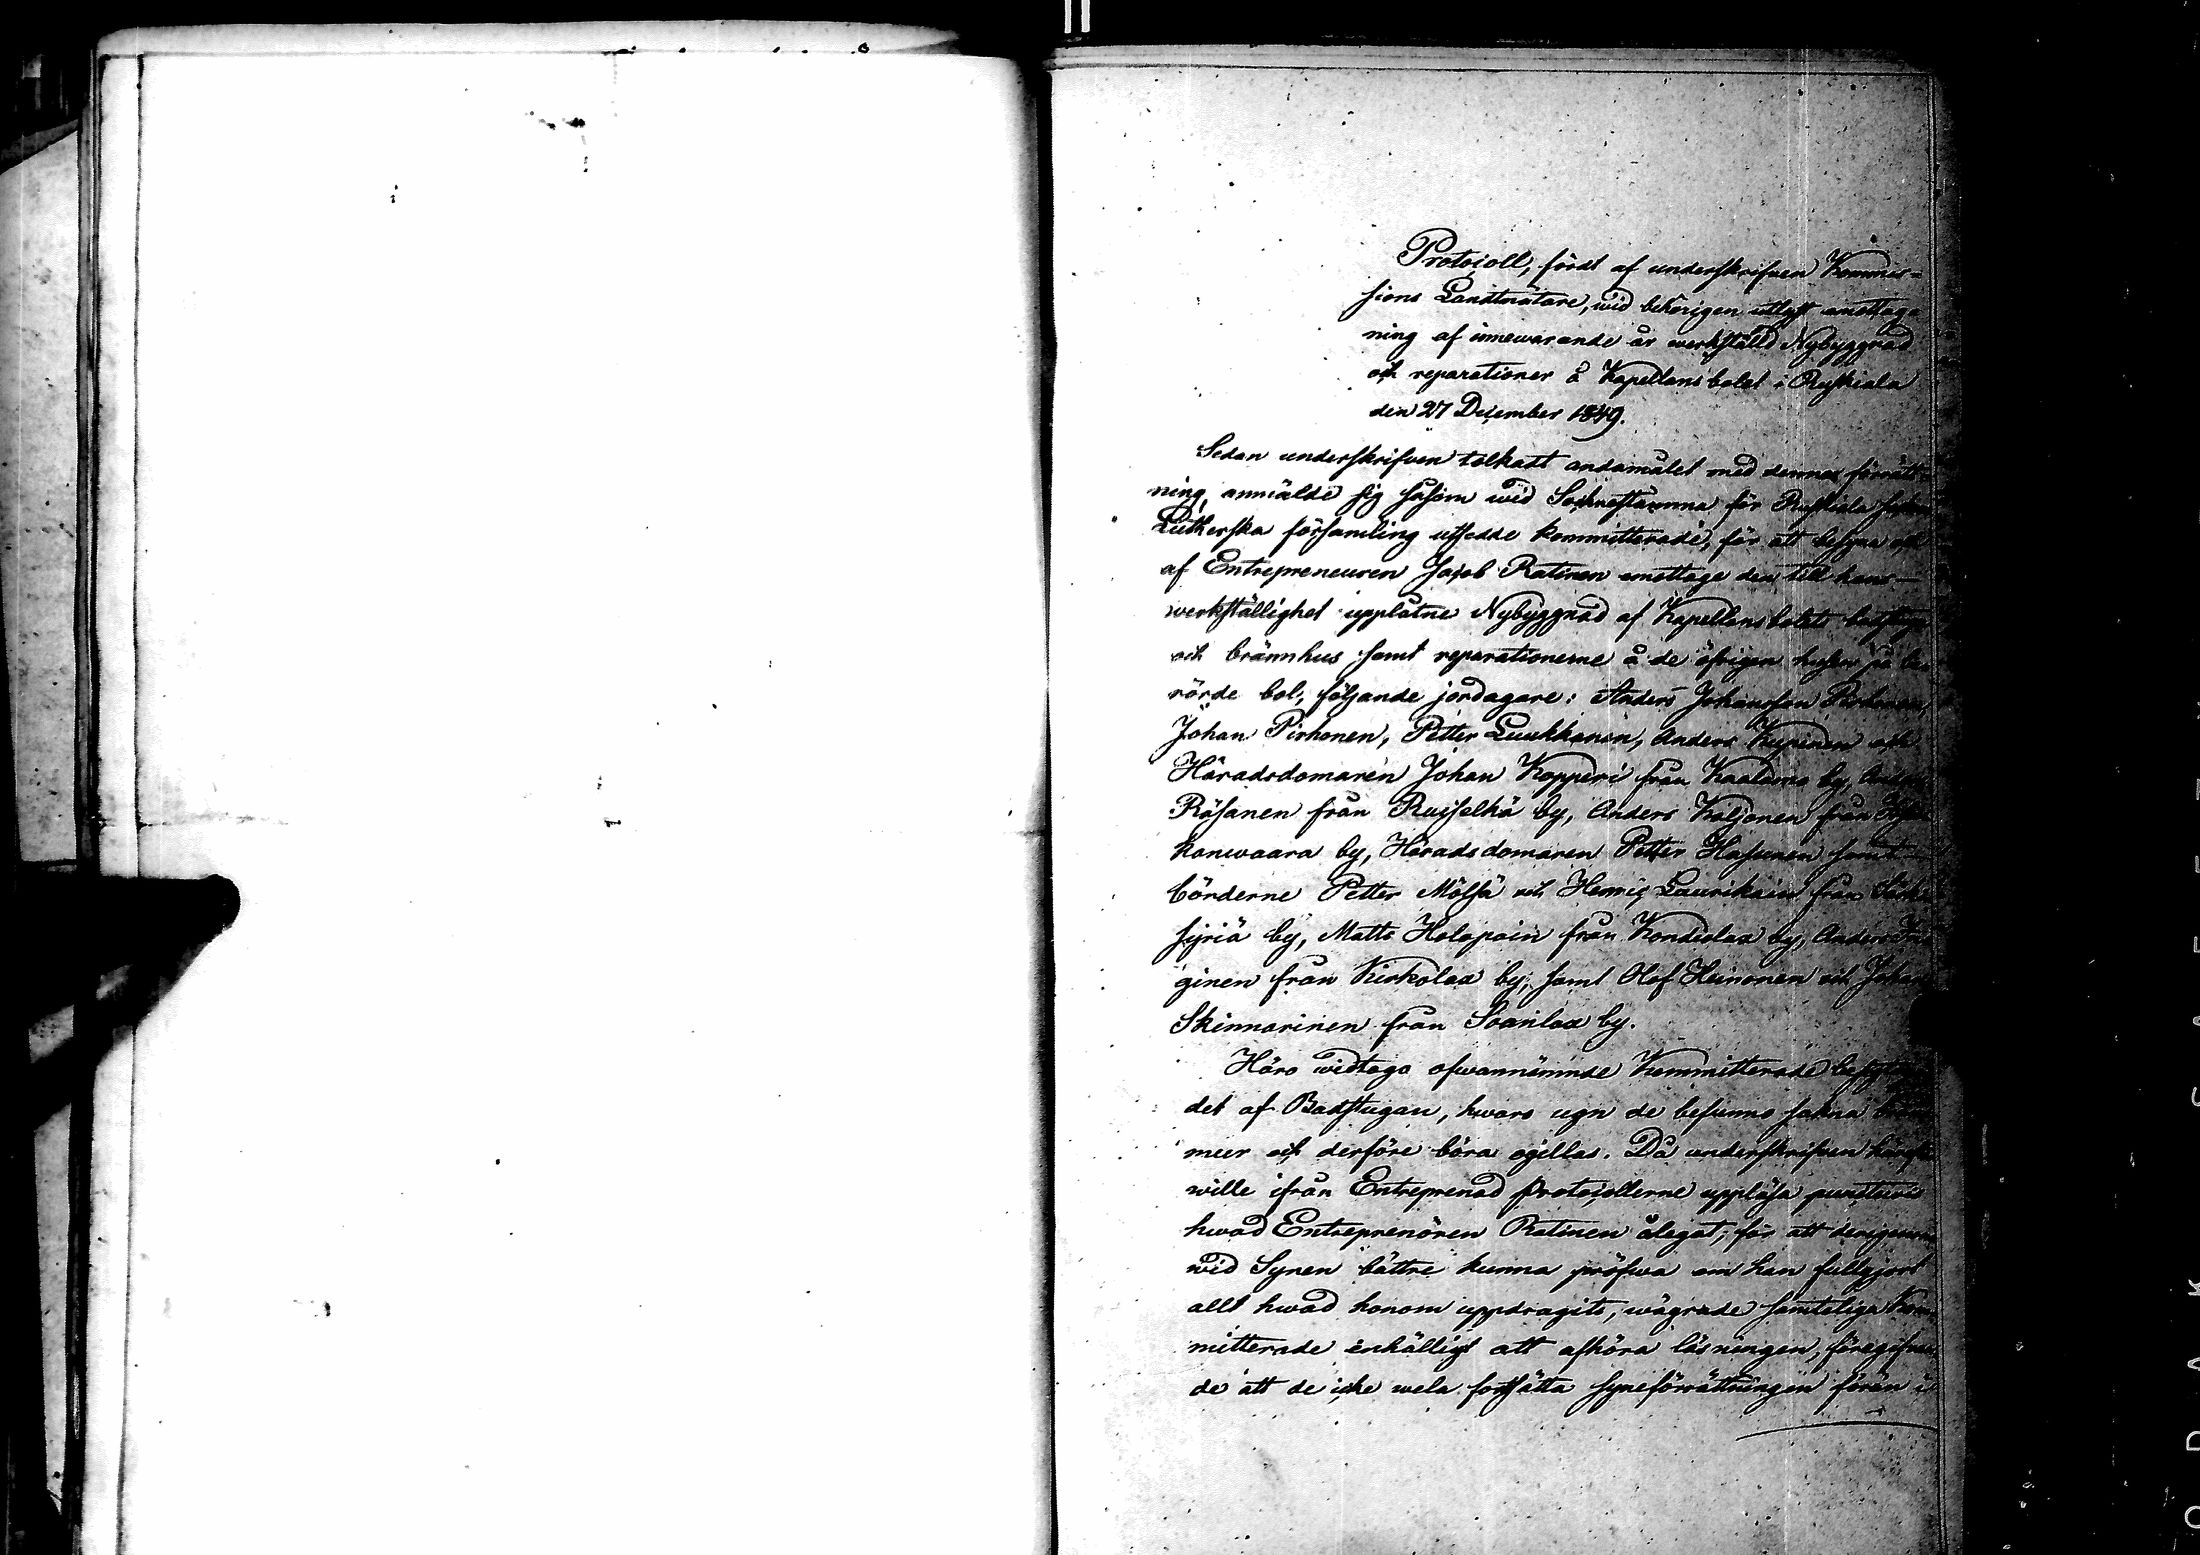 Protocoll, fördt af underskrifven Kommis-
sions Landtmätare, wid behörigen utlyst emottag-
ning af innewarande år werkställd Nybyggnad
och reparationer å Kapellansbolet i Ruskiala
den 27 December 1849.
Sedan underskrifven tolkadt andamålet med denna förrätt-
ning, anmälde sig såsom wid Sockne stämma för Ruskiala
Lutherska församling utsedde kommitterade, för att besyna och
af Entrepreneuren Jacob Ratinen emottage den till hans
werkställighet upplåtne Nybyggnad af Kapellansbolets
och brännhus samt reparationerne å de öfrigen husen på be-
rörde bol, följande jordagare: Anders Johansson
Johan Pirhonen, Petter Luukkanen, Anders Kupinen och
Häradsdomaren Johan Kopperi från Kaalamo by, Anders
Räsanen från Ruisselkä by, Anders Koljonen från
kanwaara by, Häradsdomaren Petter Hassinen samt
bönderne Petter Mölsä och Henric Laurikain från Särki
syriä by, Matts Holopain från Kondiolax by, Anders
ginen från Kirkolax by, samt Olof Heinonen och Johan
Skinnarinen från Soanlax by.
Härå widtogo ofwannämnde Kommitterade
det af Badstugan, hwars ugn de befunno sakna
mur och derföre böra ogillas. Då underskrifven
wille ifrån Entreprenad Protocollerne uppläsa punctwis
hwad Entreprenören Ratinen ålegat, för att derigenom
wid Synen bättre kunna pröfwa om han fullgjort
allt hwad honom uppdragits, wägrade samteliga Kom-
mitterade enhälligt att afhöra läsningen, föregifwan-
de att de icke wela fortsätta syneförrättningen förän